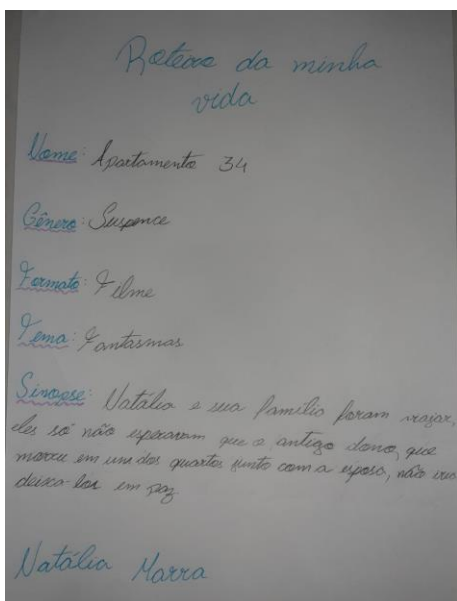 Roteiro da minha
vida
Nome: Apartamento 34
Gênero: Suspence
Formato: Filme
Tema: Fantasmas
Sinopse: Natália e sua família foram viajar,
eles só não esperavam que o antigo dono, que
morreu em um dos quartos junto com a esposa, não iria
deixa-los em paz
Natália Marra